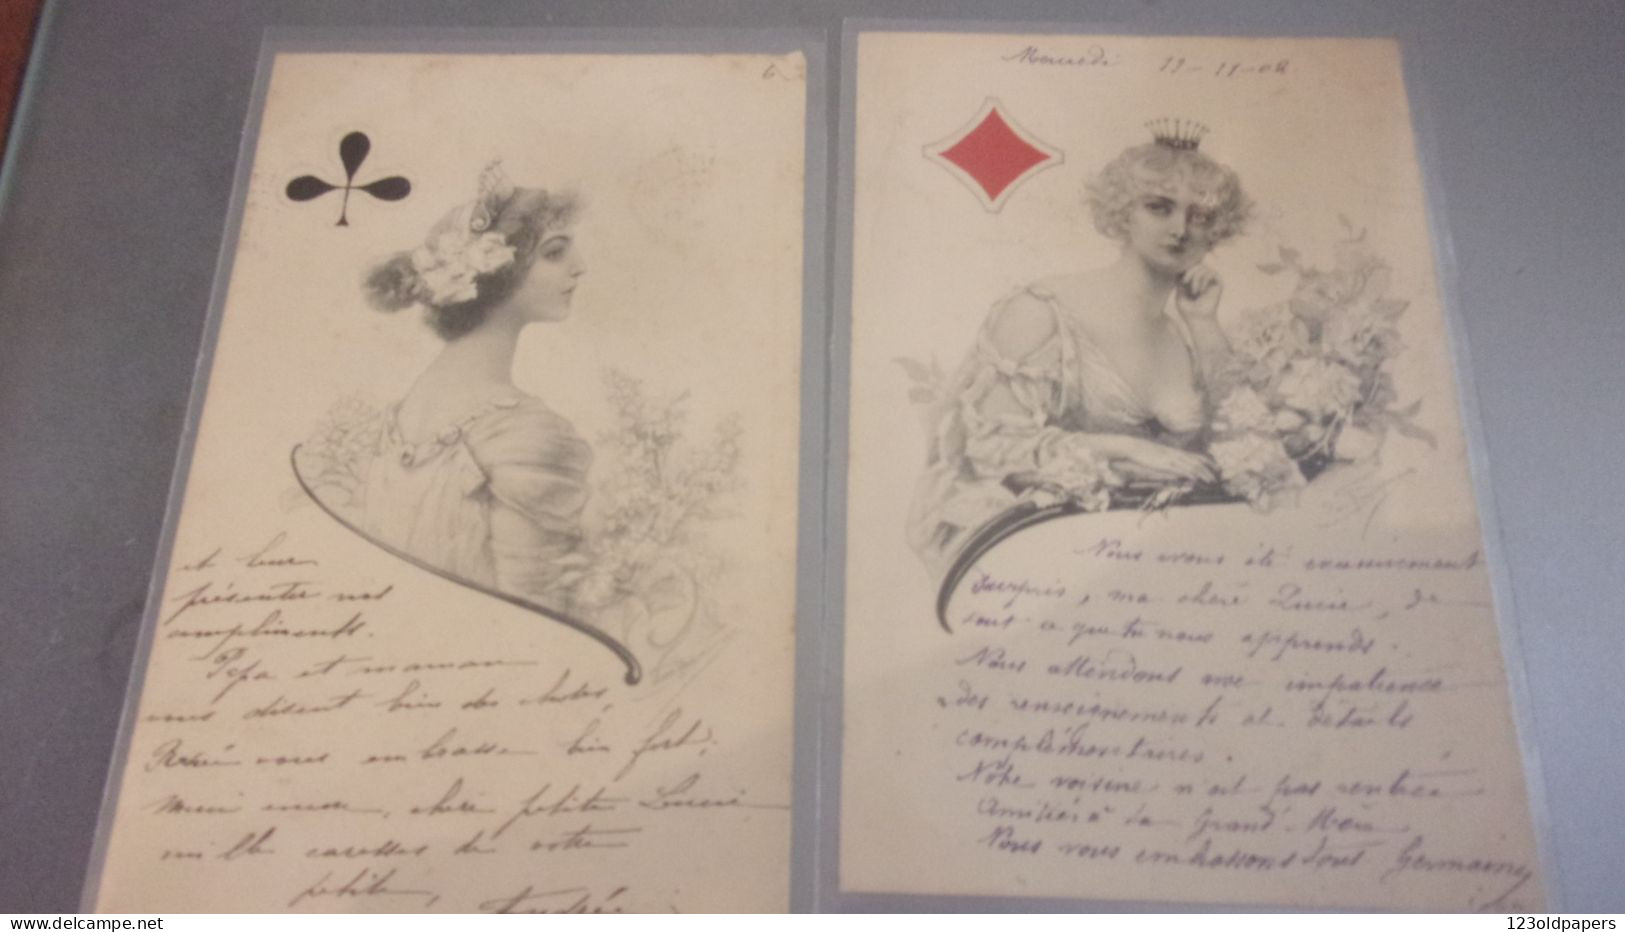 et leur
présenter nos
compliments.
Papa et maman
vous disent bien des choses,
René vous embrasse bien fort,
Merci encore, chère petite Lucie
mille caresses de votre
petite,
Andrée
Mercredi 11-02
Nous avons été
surpris, ma chère Lucie, de
tout ce que tu nous apprends.
Nous attendons avec impatience
des renseignements et détails
complémentaires.
Notre voisine n'est pas rentrée
Amitiés à ta Grand-Mère
Nous vous embrassons tous Germaine
123oldpapers